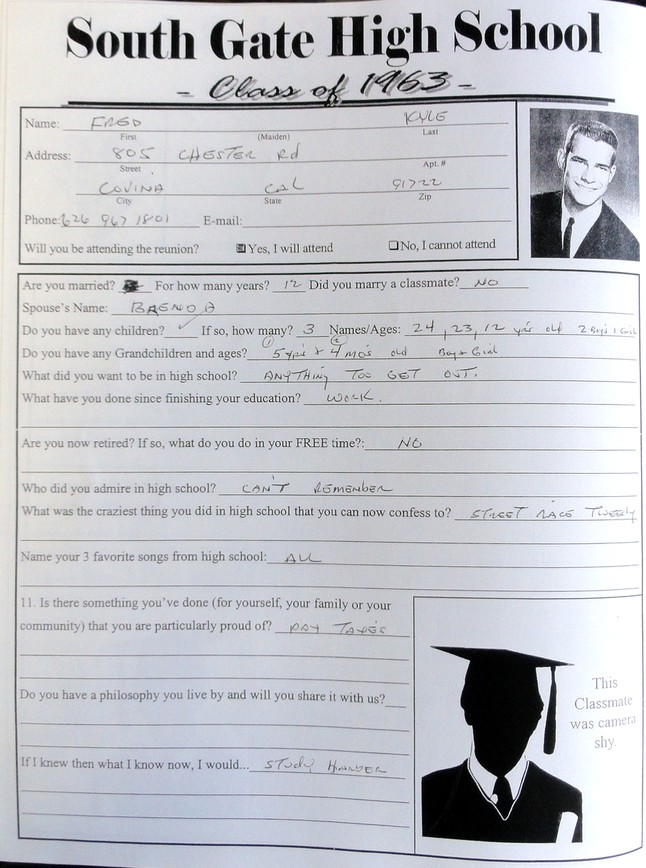 South Gate High School
- Class of 1963 -
Name: FRED KYLE
First (Maiden) Last
Address: 805 CHESTER Rd
Street Apt. #
COVINA CAL 91722
City State Zip
Phone: 626 967 1801 E-mail:
Will you be attending the reunion? Yes, I will attend No, I cannot attend
Are you married? For how many years? 12 Did you marry a classmate? NO
Spouse's Name: BRENDA
Do you have any children? ✓ If so, how many? 3 Names/Ages: 24, 23, 12 yrs old 2 Boys 1 Girl
Do you have any Grandchildren and ages? 5 yrs & 4 mos old Boy & Girl
What did you want to be in high school? ANYTHING TOO GET OUT.
What have you done since finishing your education? WORK.
Are you now retired? If so, what do you do in your FREE time?: NO
Who did you admire in high school? CAN'T REMEMBER
What was the craziest thing you did in high school that you can now confess to? STREET RACE TWEEDY
Name your 3 favorite songs from high school: ALL
11. Is there something you've done (for yourself, your family or your
community) that you are particularly proud of? PAY TAXES
Do you have a philosophy you live by and will you share it with us?
If I knew then what I know now, I would... STUDY HARDER
This
Classmate
was camera
shy.